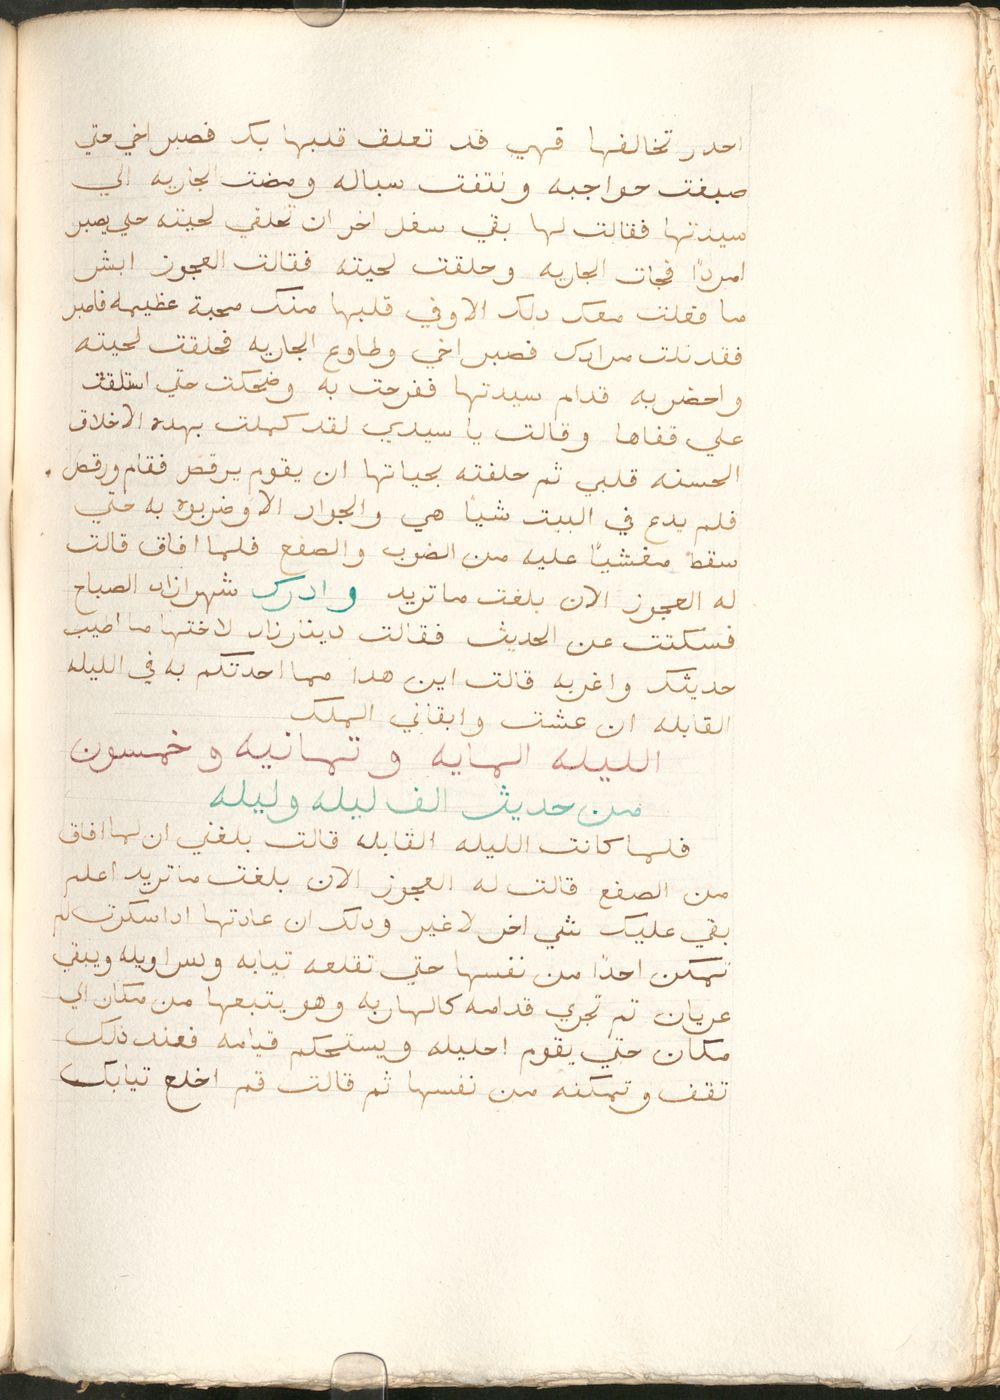 احدر تخالفها فهي قد تعلق قلبها بك فصبر اخي حتي
صبغت حواجبه ونتفت سباله ومضت الجاريه الي
سيدتها فقالت لها بقي سغل اخر ان تحلقي لحيته حتي يصبر
امردًا فجات الجاريه وحلقت لحيته فقالت العجوز ابشر
ما فعلت معك دلك الا وفي قلبها منك محبة عظيمه فاصبر
فقد نلت مرادك فصبر اخي وطاوع الجاريه فحلقت لحيته
واحضربه قدام سيدتها ففرحت به وضحكت حتي استلقت
علي قفاها وقالت يا سيدي لقد كملت بهده الاخلاق
الحسنه قلبي ثم حلفته بحياتها ان يقوم يرقص فقام ورقص
فلم يدع في البيت شيأ هي والجوار الا وضربوه به حتي
سقط مغشيًا عليه من الضرب والصفع فلما افاق قالت
له العجوز الان بلغت ما تريد وادرك شهرازاد الصباح
فسكتت عن الحديث فقالت دينارزاد لاختها ما اطيب
حديثك واغربه قالت اين هدا مما احدتكم به في الليله
القابله ان عشت وابقاني الملك
الليله المايه وتمانيه وخمسون
من حديث الف ليله وليله
فلما كانت الليله القابله قالت بلغني ان لما افاق
من الصفع قالت له العجوز الان بلغت ما تريد اعلم
بقي عليك شي اخر لا غير ودلك ان عادتها ادا سكرت لم
تمكن احدًا من نفسها حتي تقلعه تيابه وسراويله ويبقي
عريان تم تجري قدامه كالهاربه وهو يتبعها من مكان الي
مكان حتي يقوم احليله ويستحكم قيامه فعند ذلك
تقف وتمكنه من نفسها ثم قالت قم اخلع تيابك